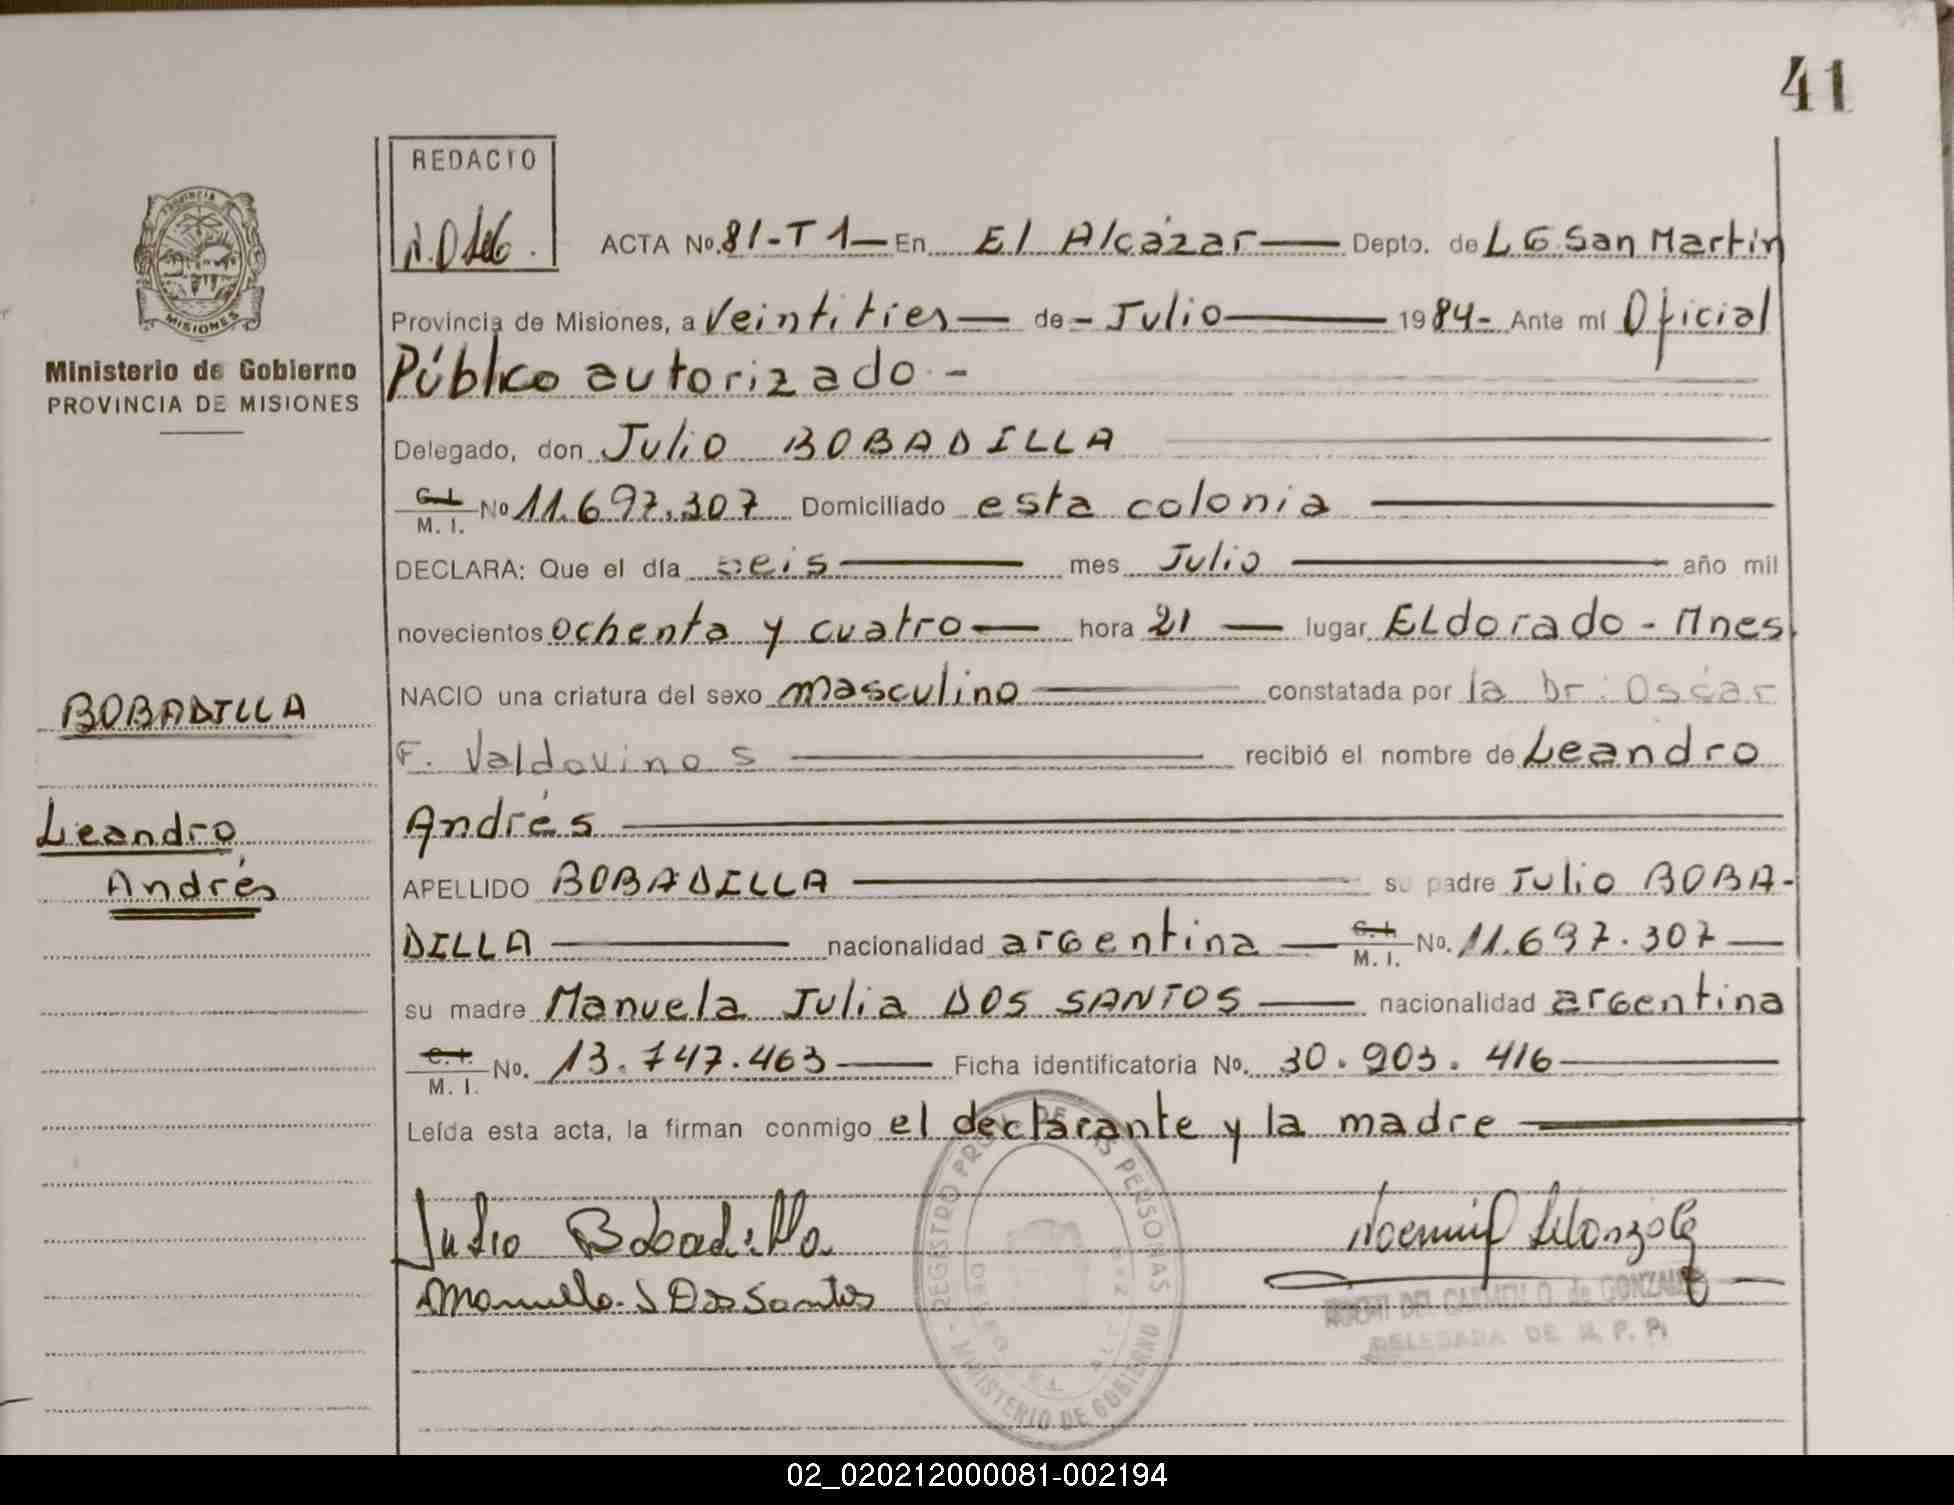 41
REDACTO
ACTA No. 81-T 1 — En El Alcázar — Depto. de L G. San Martin
Provincia de Misiones, a Veintitres — de - Julio — 19 84- Ante mí Oficial
Público autorizado -
Delegado, don Julio BOBADILLA
C. I. / M. I. No 11.697.307 Domiciliado esta colonia
DECLARA: Que el día seis — mes Julio — año mil
novecientos ochenta y cuatro — hora 21 — lugar ELdorado - Mnes.
NACIO una criatura del sexo masculino — constatada por la Dr: Oscar
F. Valdovinos — recibió el nombre de Leandro
Andrés
APELLIDO BOBADILLA — su padre Julio BOBA-
DILLA — nacionalidad argentina — C. I. / M. I. No. 11.697.307 —
su madre Manuela Julia DOS SANTOS — nacionalidad argentina
C. I. / M. I. No. 13.747.463 — Ficha identificatoria No. 30.903.416 —
Leída esta acta, la firman conmigo el declarante y la madre —
Julio Bobadilla
Manuela J Dos Santos
DEL CARMEN O. de GONZALEZ
DELEGADA DE R. P. P.
REGISTRO PROV. DE LAS PERSONAS
MINISTERIO DE GOBIERNO
PROVINCIA
MISIONES
Ministerio de Gobierno
PROVINCIA DE MISIONES
BOBADILLA
Leandro
Andrés
02_020212000081-002194